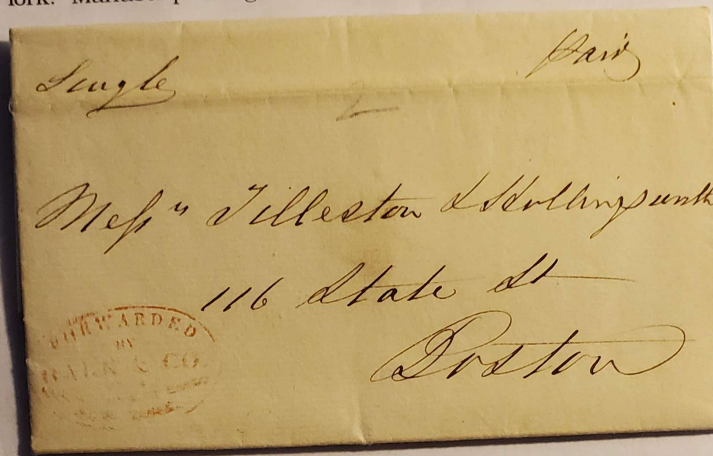 York. Manuscript
Single
Paid
2
Messrs Tilleston & Hollingsworth
116 State St
Boston
FORWARDED
BY
HALE & CO.